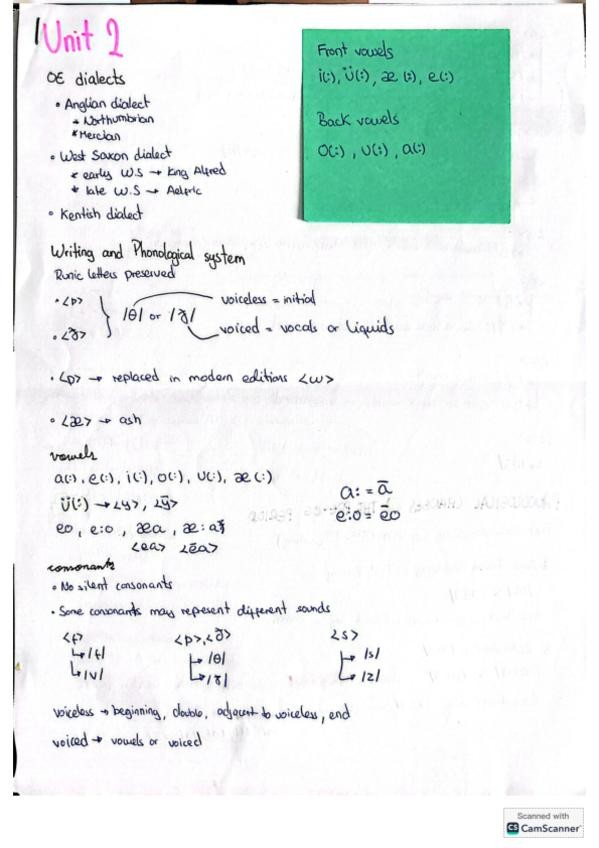 Unit 2
OE dialects
• Anglian dialect
* Northumbrian
* Mercian
• West Saxon dialect
* early W.S → King Alfred
* late W.S → Aelfric
• Kentish dialect
Front vowels
i(:), Ü(:), æ(:), e(:)
Back vowels
O(:), U(:), a(:)
Writing and Phonological system
Runic letters preserved
• <þ>
• <ð>
/θ/ or /ð/
voiceless = initial
voiced = vocals or liquids
• <p> → replaced in modern editions <w>
• <æ> → ash
vowels
a(:), e(:), i(:), o(:), U(:), æ(:)
Ü(:) → <y>, <ȳ>
eo, e:o, æa, æ:a
<ea> <ēa>
a: = ā
e:o = ēo
consonants
• No silent consonants
• Some consonants may represent different sounds
<f>
↳ /f/
↳ /v/
<þ>, <ð>
↳ /θ/
↳ /ð/
<s>
↳ /s/
↳ /z/
voiceless → beginning, double, adjacent to voiceless, end
voiced → vowels or voiced
Scanned with
CS CamScanner